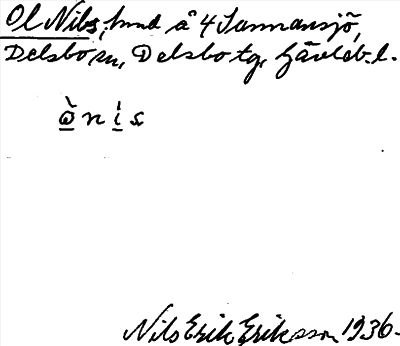 Ol Nibs, hmd å 4 Sannansjö,
Delsbo sn, Delsbo tg, Gävleb. l.
ὼ n i s
Nils Erik Eriksson 1936.